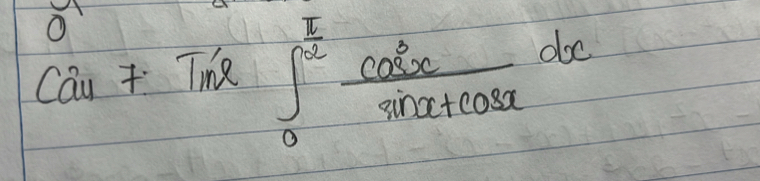 0
Câu 7: Tính ∫₀^{π/2} cos³x / (sinx + cosx) dx